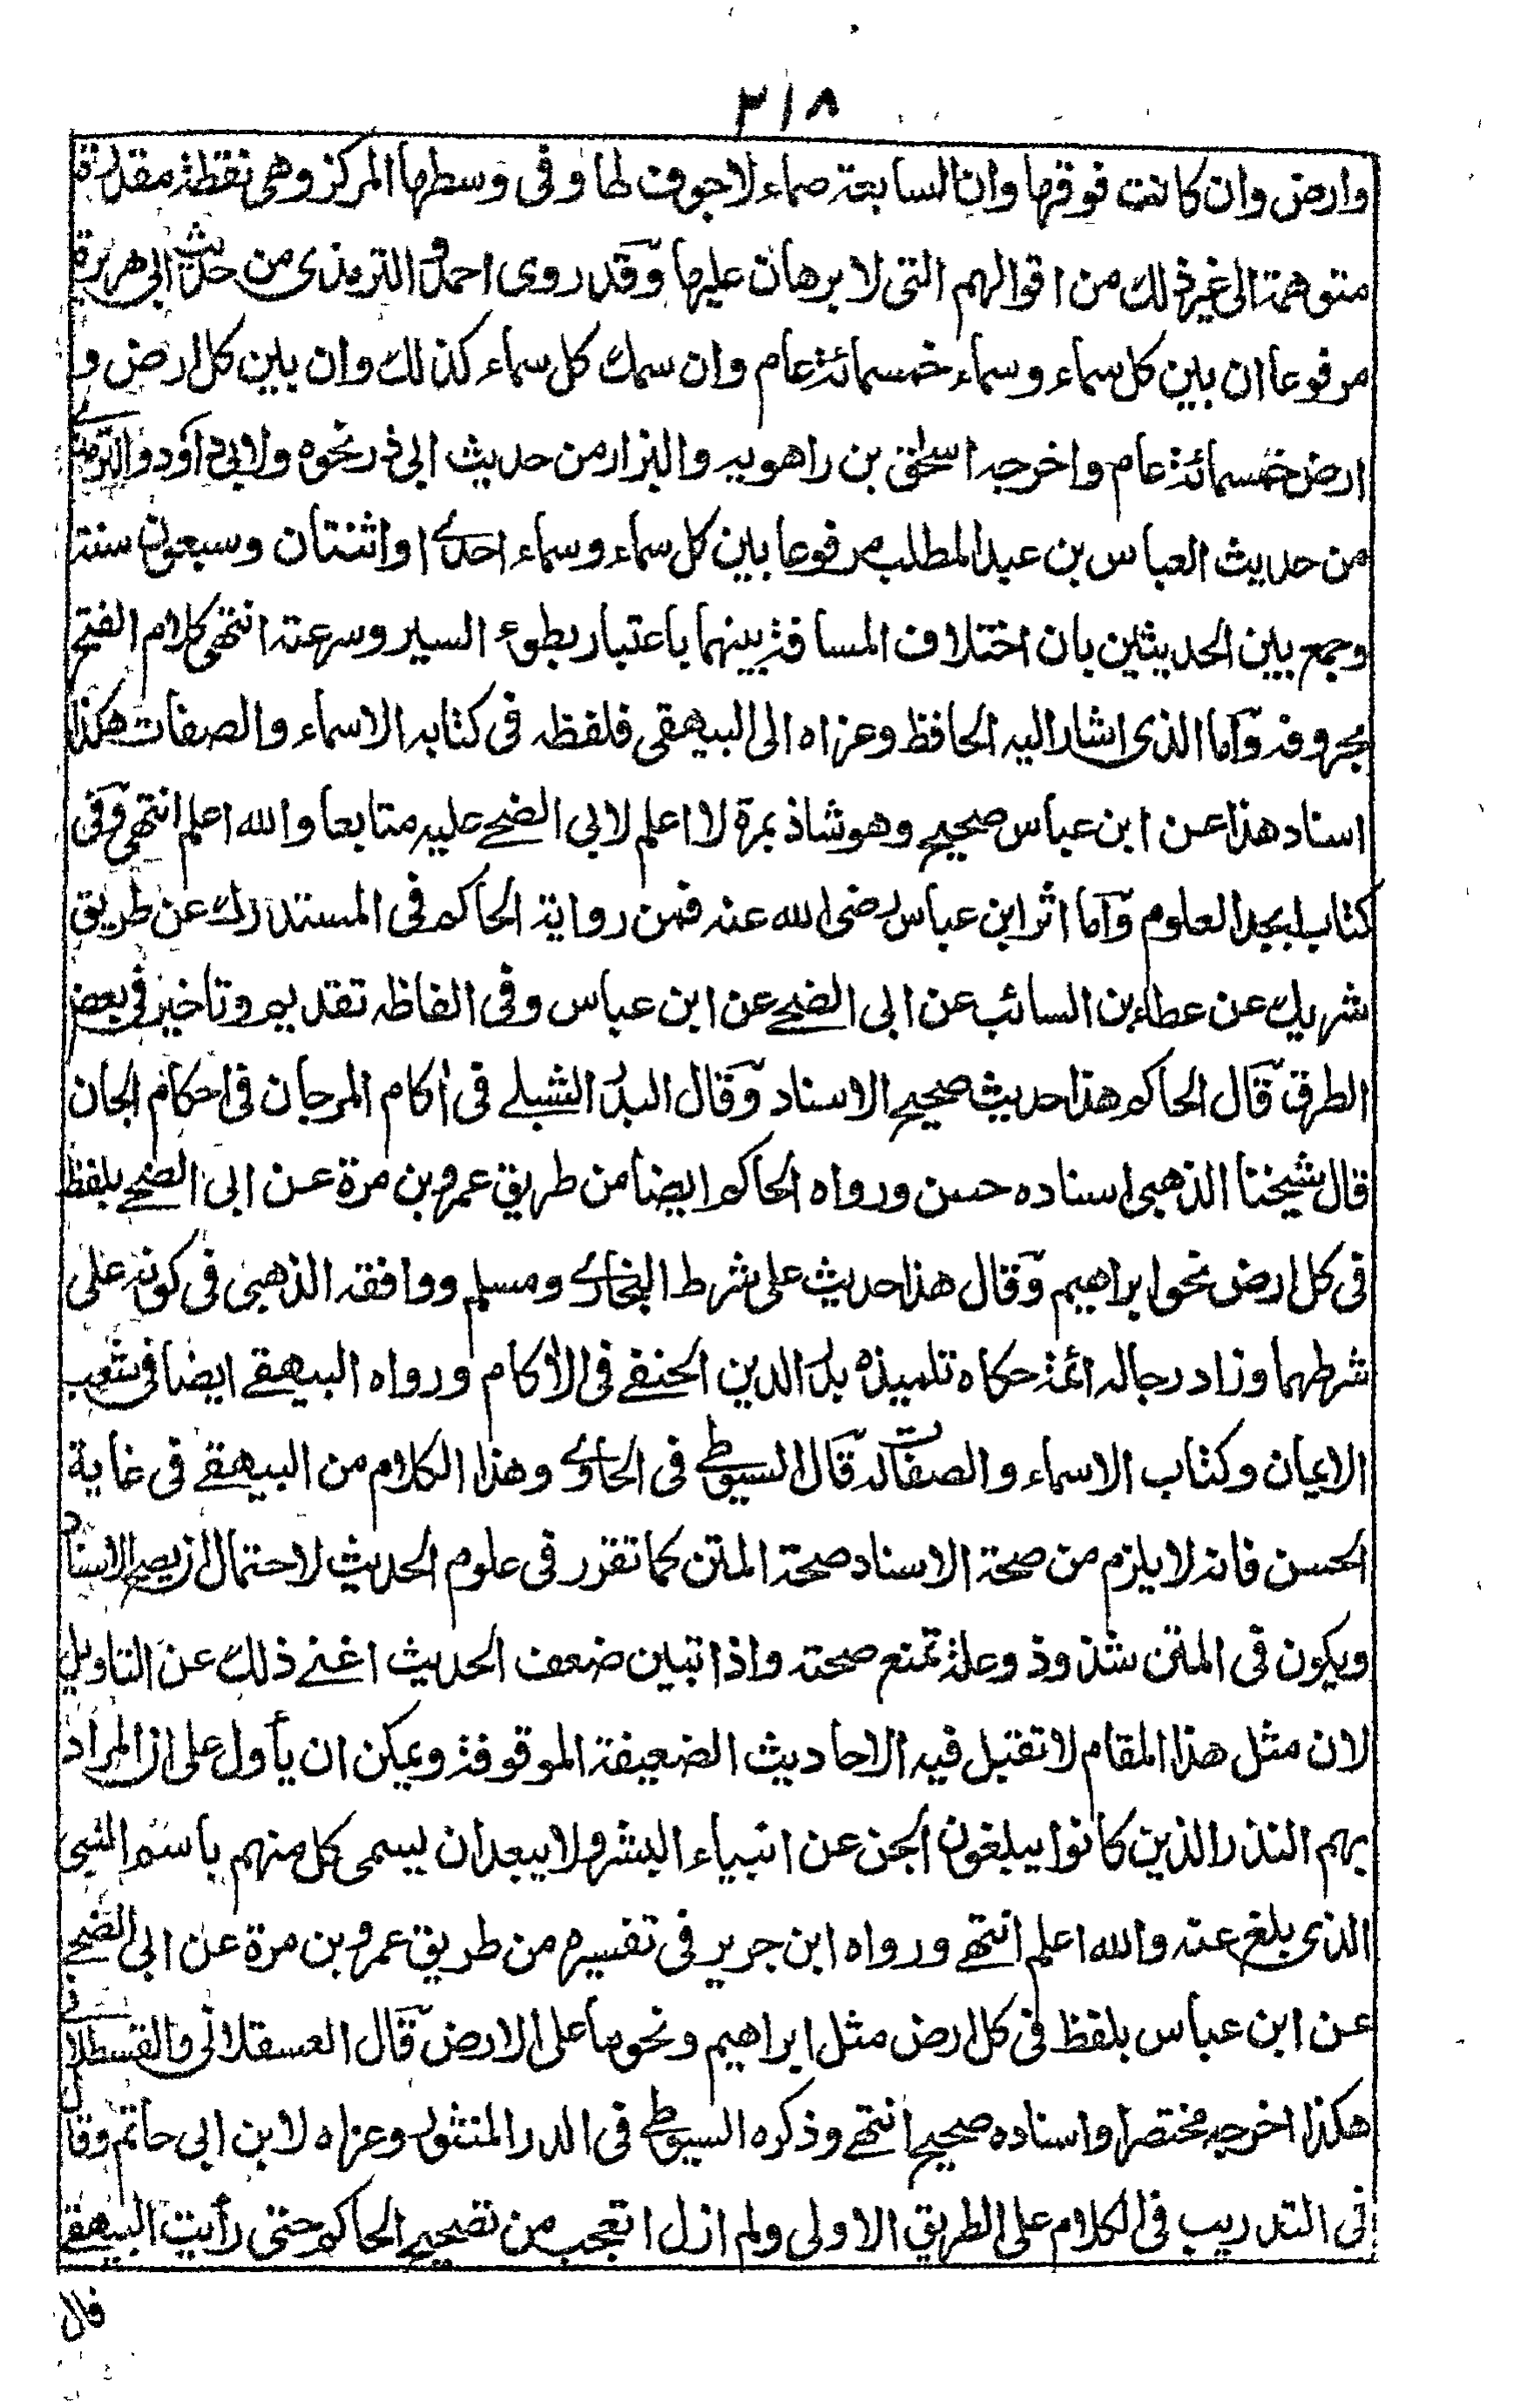 ٢١٨
وارض وان كانت فوقها وان السابعة صماء لا جوف لها وفى وسطها المركز وهى نقطة مقدرة
متوهمة الى غير ذلك من اقوالهم التى لا برهان عليها وقد روى احمد والترمذى من حديث ابى هريرة
مرفوعا ان بين كل سماء وسماء خمسمائة عام وان سمك كل سماء كذلك وان بين كل ارض و
ارض خمسمائة عام واخرجه اسحٰق بن راهويه والبزار من حديث ابى ذر نحوه ولابى داؤد والترمذى
من حديث العباس بن عبد المطلب مرفوعا بين كل سماء وسماء احدى او اثنتان وسبعون سنة
وجمع بين الحديثين بان اختلاف المسافة بينهما باعتبار بطوء السير وسرعته انتهى كلام الفتح
بحروفه واما الذى اشار اليه الحافظ وعزاه الى البيهقى فلفظه فى كتابه الاسماء والصفات هكذا
اسناد هذا عن ابن عباس صحيح وهو شاذ بمرة لا اعلم لابى الضحى عليه متابعا والله اعلم انتهى وفى
كتاب ابجد العلوم واما اثر ابن عباس رضى الله عنه فمن رواية الحاكم فى المستدرك عن طريق
شريك عن عطاء بن السائب عن ابى الضحى عن ابن عباس وفى الفاظه تقديم وتاخير فى بعض
الطرق قال الحاكم هذا حديث صحيح الاسناد وقال البدر الشبلى فى اٰكام المرجان فى احكام الجان
قال شيخنا الذهبى اسناده حسن ورواه الحاكم ايضا من طريق عمرو بن مرة عن ابى الضحى بلفظ
فى كل ارض نحو ابراهيم وقال هذا حديث على شرط البخارى ومسلم ووافقه الذهبى فى كونه على
شرطهما وزاد رجاله ائمة حكاه تلميذه بدر الدين الحنفى فى الاٰكام ورواه البيهقى ايضا فى شعب
الايمان وكتاب الاسماء والصفات له قال السيوطى فى الحاوى وهذا الكلام من البيهقى فى غاية
الحسن فانه لا يلزم من صحة الاسناد صحة المتن كما تقرر فى علوم الحديث لاحتمال ان يصح الاسناد
ويكون فى المتن شذوذ وعلة تمنع صحته واذا تبين ضعف الحديث اغنى ذلك عن التاويل
لان مثل هذا المقام لا تقبل فيه الاحاديث الضعيفة الموقوفة ويمكن ان يأول على ان المراد
بهم النذر الذين كانوا يبلغون الجن عن انبياء البشر ولا يبعد ان يسمى كل منهم باسم النبى
الذى بلغ عنه والله اعلم انتهى ورواه ابن جرير فى تفسيره من طريق عمرو بن مرة عن ابى الضحى
عن ابن عباس بلفظ فى كل ارض مثل ابراهيم ونحو ما على الارض قال العسقلانى والقسطلانى
هكذا اخرجه مختصرا واسناده صحيح انتهى وذكره السيوطى فى الدر المنثور وعزاه لابن ابى حاتم وقال
فى التدريب فى الكلام على الطريق الاولى ولم ازل اتعجب من تصحيح الحاكم حتى رأيت البيهقى
قال